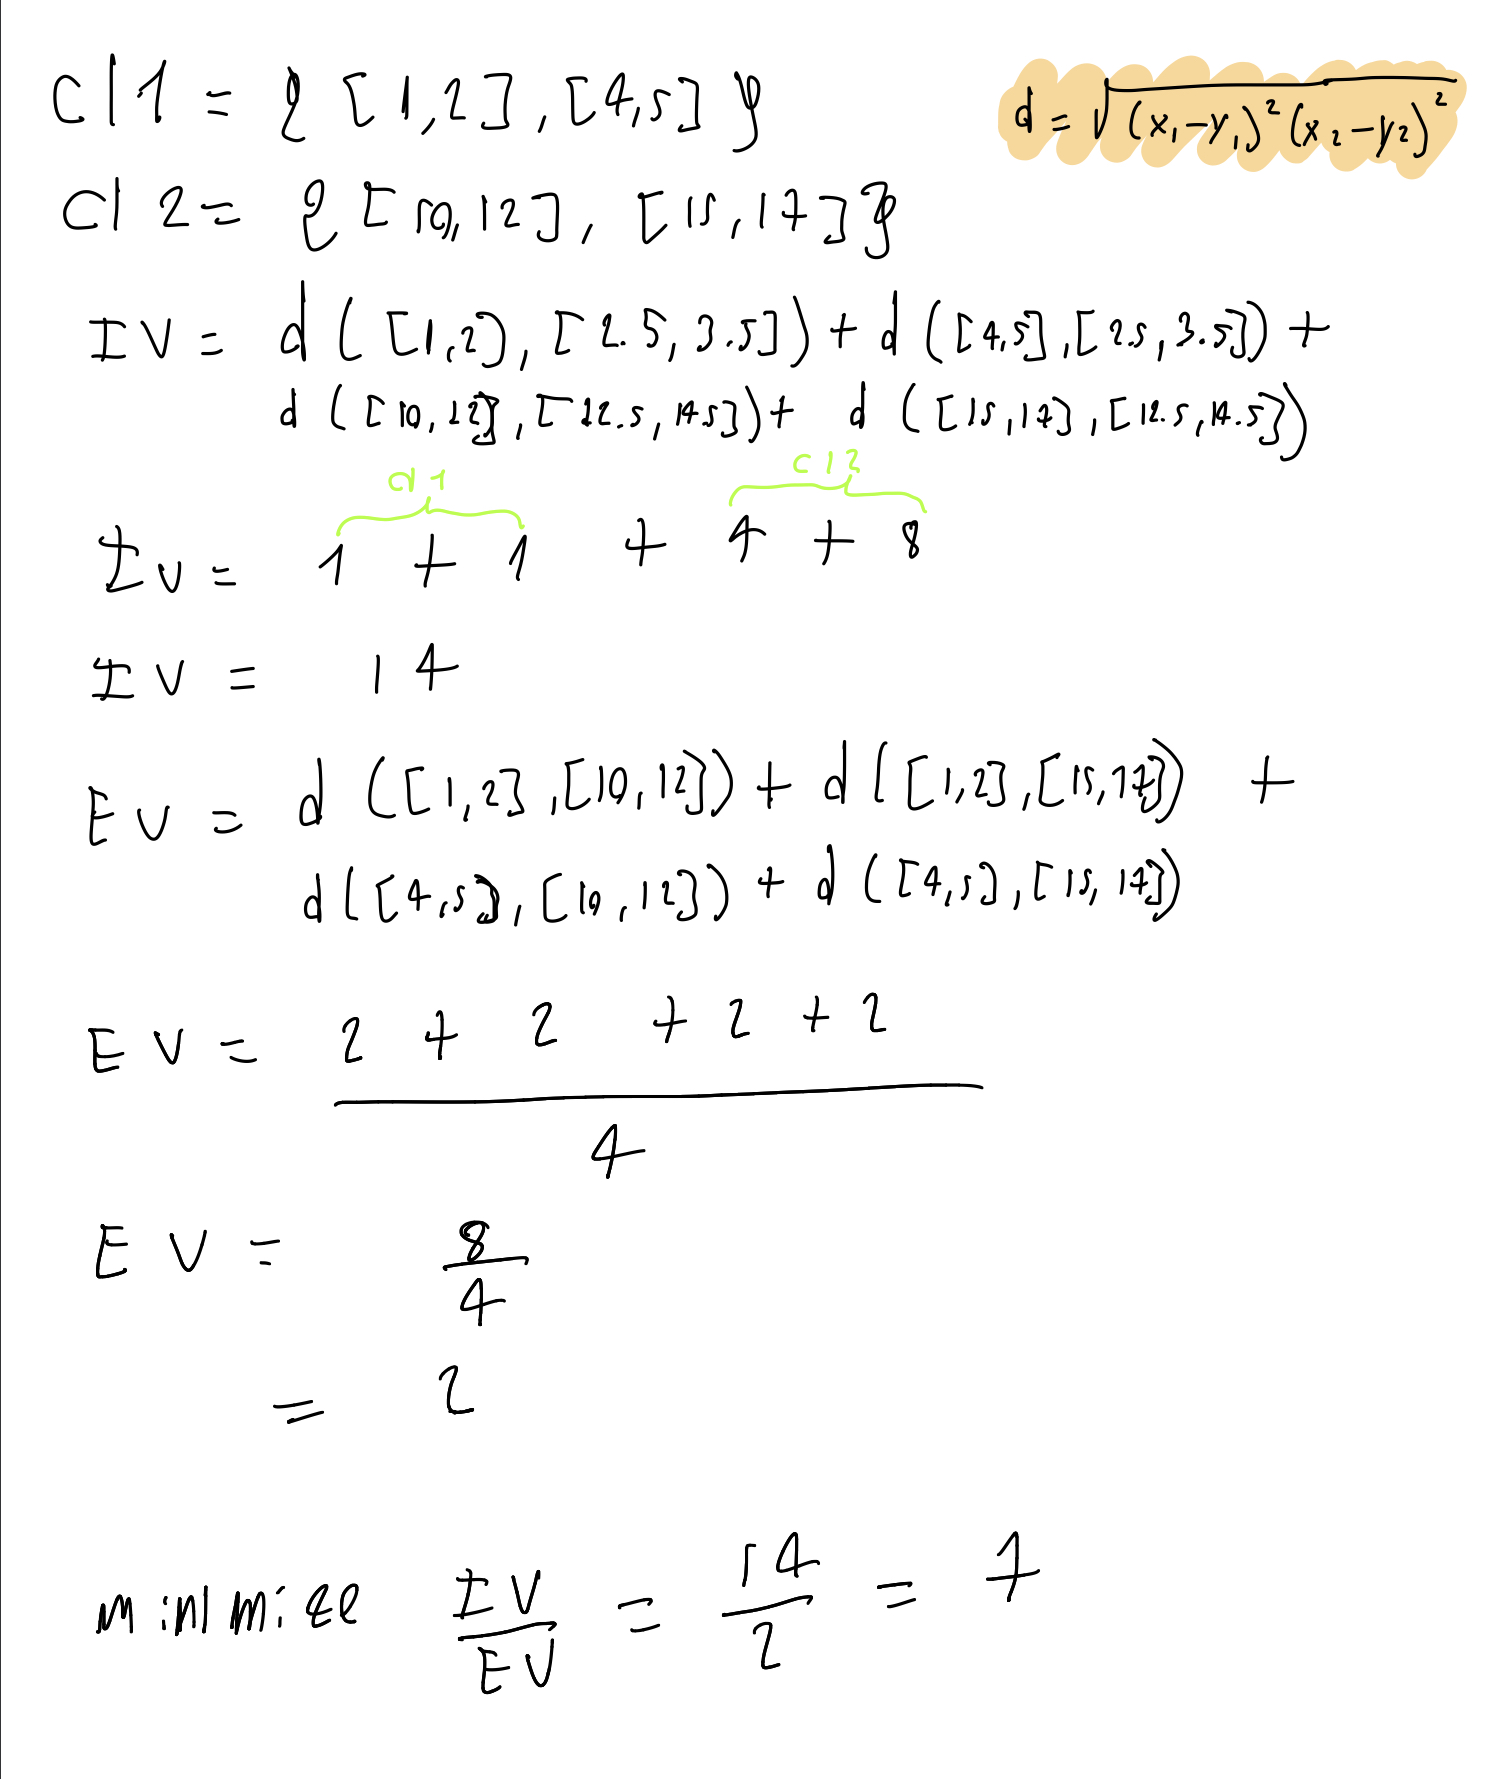 cl1 = { [1,2] , [4,5] }
d = √(x₁-y₁)²(x₂-y₂)²
cl 2 = { [10,12] , [15,17] }
IV = d ( [1,2), [2.5, 3.5] ) + d ( [4,5], [2.5, 3.5] ) +
d ( [10, 12], [12.5, 14.5] ) + d ( [15,17], [12.5, 14.5] )
cl 1 cl 2
IV = 1 + 1 + 4 + 8
IV = 14
EV = d ( [1,2], [10,12] ) + d ( [1,2], [15,17] ) +
d ( [4,5], [10,12] ) + d ( [4,5], [15,17] )
EV = 2 + 2 + 2 + 2
4
EV = 8
4
= 2
minimize IV/EV = 14/2 = 7